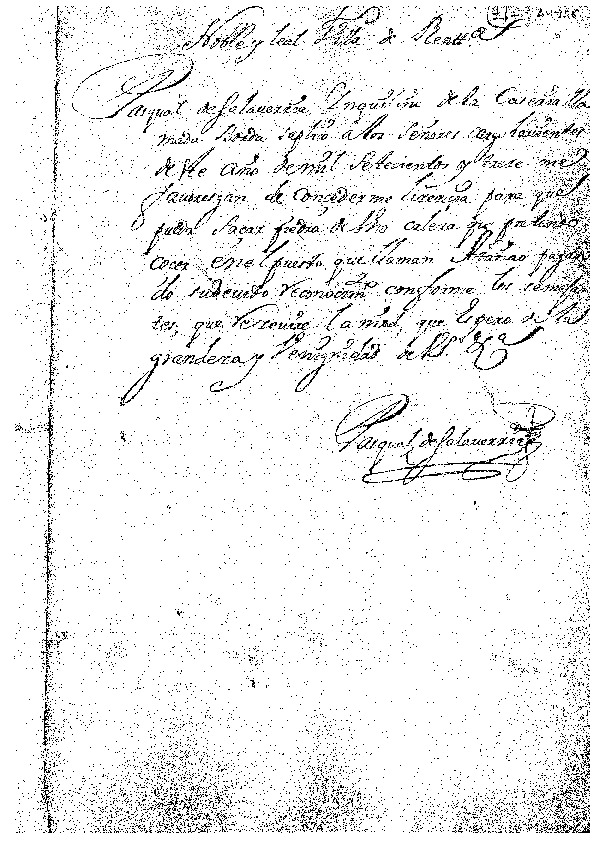 Noble y leal Villa de Rentᵃ
Pasqual de Salaverria Inquilino de la Caseria lla
mada Borda suplico a los Señores
de ste año de mil Setecientos y trece me
favorezcan de Concederme licencia para que
pueda Sacar piedra de Uno calera que pretendo
cocer en el puesto que llaman pagan
do su devido reconocimᵗᵒ conforme los
tes, que rrecevire la mrd, que Espero de la
grandeza y Venignidad de Vˢ Sᵃ
Pasqual de Salaverria